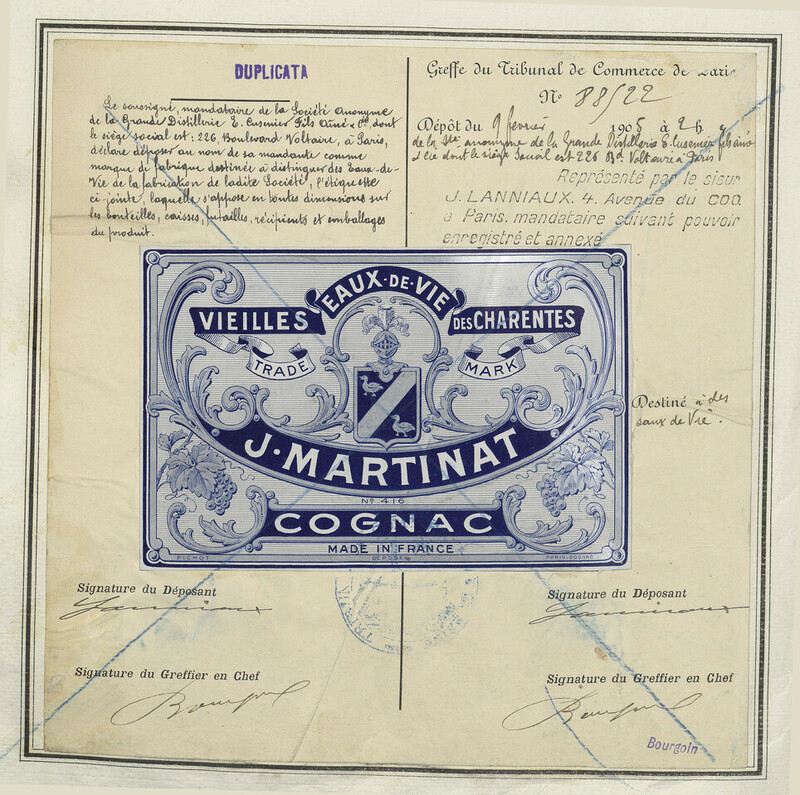 DUPLICATA
Le soussigné, mandataire de la Société Anonyme
de la Grande Distillerie E. Cusenier Fils Aîné & Cie, dont
le siège social est : 226, Boulevard Voltaire, à Paris,
déclare déposer au nom de sa mandante comme
marque de fabrique destinée à distinguer des Eaux-de-
Vie de la fabrication de ladite Société, l'étiquette
ci-jointe, laquelle s'appose en toutes dimensions sur
les bouteilles, caisses, futailles, récipients et emballages
du produit.
Greffe du Tribunal de Commerce de Paris
No 88/22
Dépôt du 9 février 1905 à 2 h
de la Sté anonyme de la Grande Distillerie E. Cusenier fils aîné
& Cie dont le siège social est 226 Bd Voltaire à Paris
Représenté par le sieur
J. LANNIAUX, 4, Avenue du COQ
à Paris, mandataire suivant pouvoir
enregistré et annexé
VIEILLES EAUX-DE-VIE DES CHARENTES
TRADE MARK
J. MARTINAT
No 416
COGNAC
MADE IN FRANCE
PICHOT DÉPOSÉ PARIS-COGNAC
Destiné à des
eaux de Vie.
Signature du Déposant
Lanniaux
Signature du Greffier en Chef
Signature du Déposant
Lanniaux
Signature du Greffier en Chef
Bourgoin